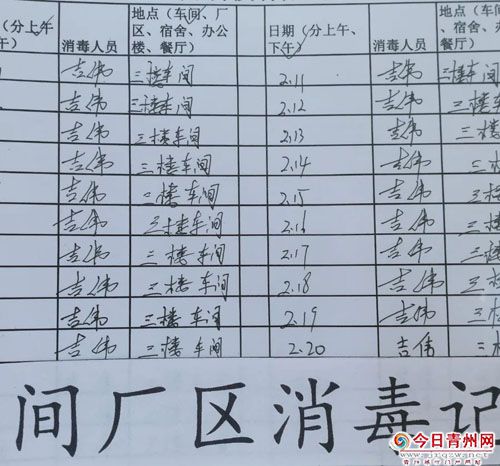 （分上午 消毒人员 地点（车间、厂 日期（分上午、 消毒人员 地点（车间
午） 区、宿舍、办公 下午） 、宿舍、办
楼、餐厅） 楼、餐厅）
吉伟 三楼车间 2.11 吉伟 三楼车间
吉伟 三楼车间 2.12 吉伟 三楼车
吉伟 三楼车间 2.13 吉伟 三楼
吉伟 三楼车间 2.14 吉伟 三楼
吉伟 三楼车间 2.15 吉伟 三楼
吉伟 三楼车间 2.16 吉伟 三楼
吉伟 三楼车间 2.17 吉伟 三楼
吉伟 三楼车间 2.18 吉伟 三楼
吉伟 三楼车间 2.19 吉伟 三楼
吉伟 三楼车间 2.20 吉伟 三楼
间厂区消毒记
今日青州网
www.jrqzw.net